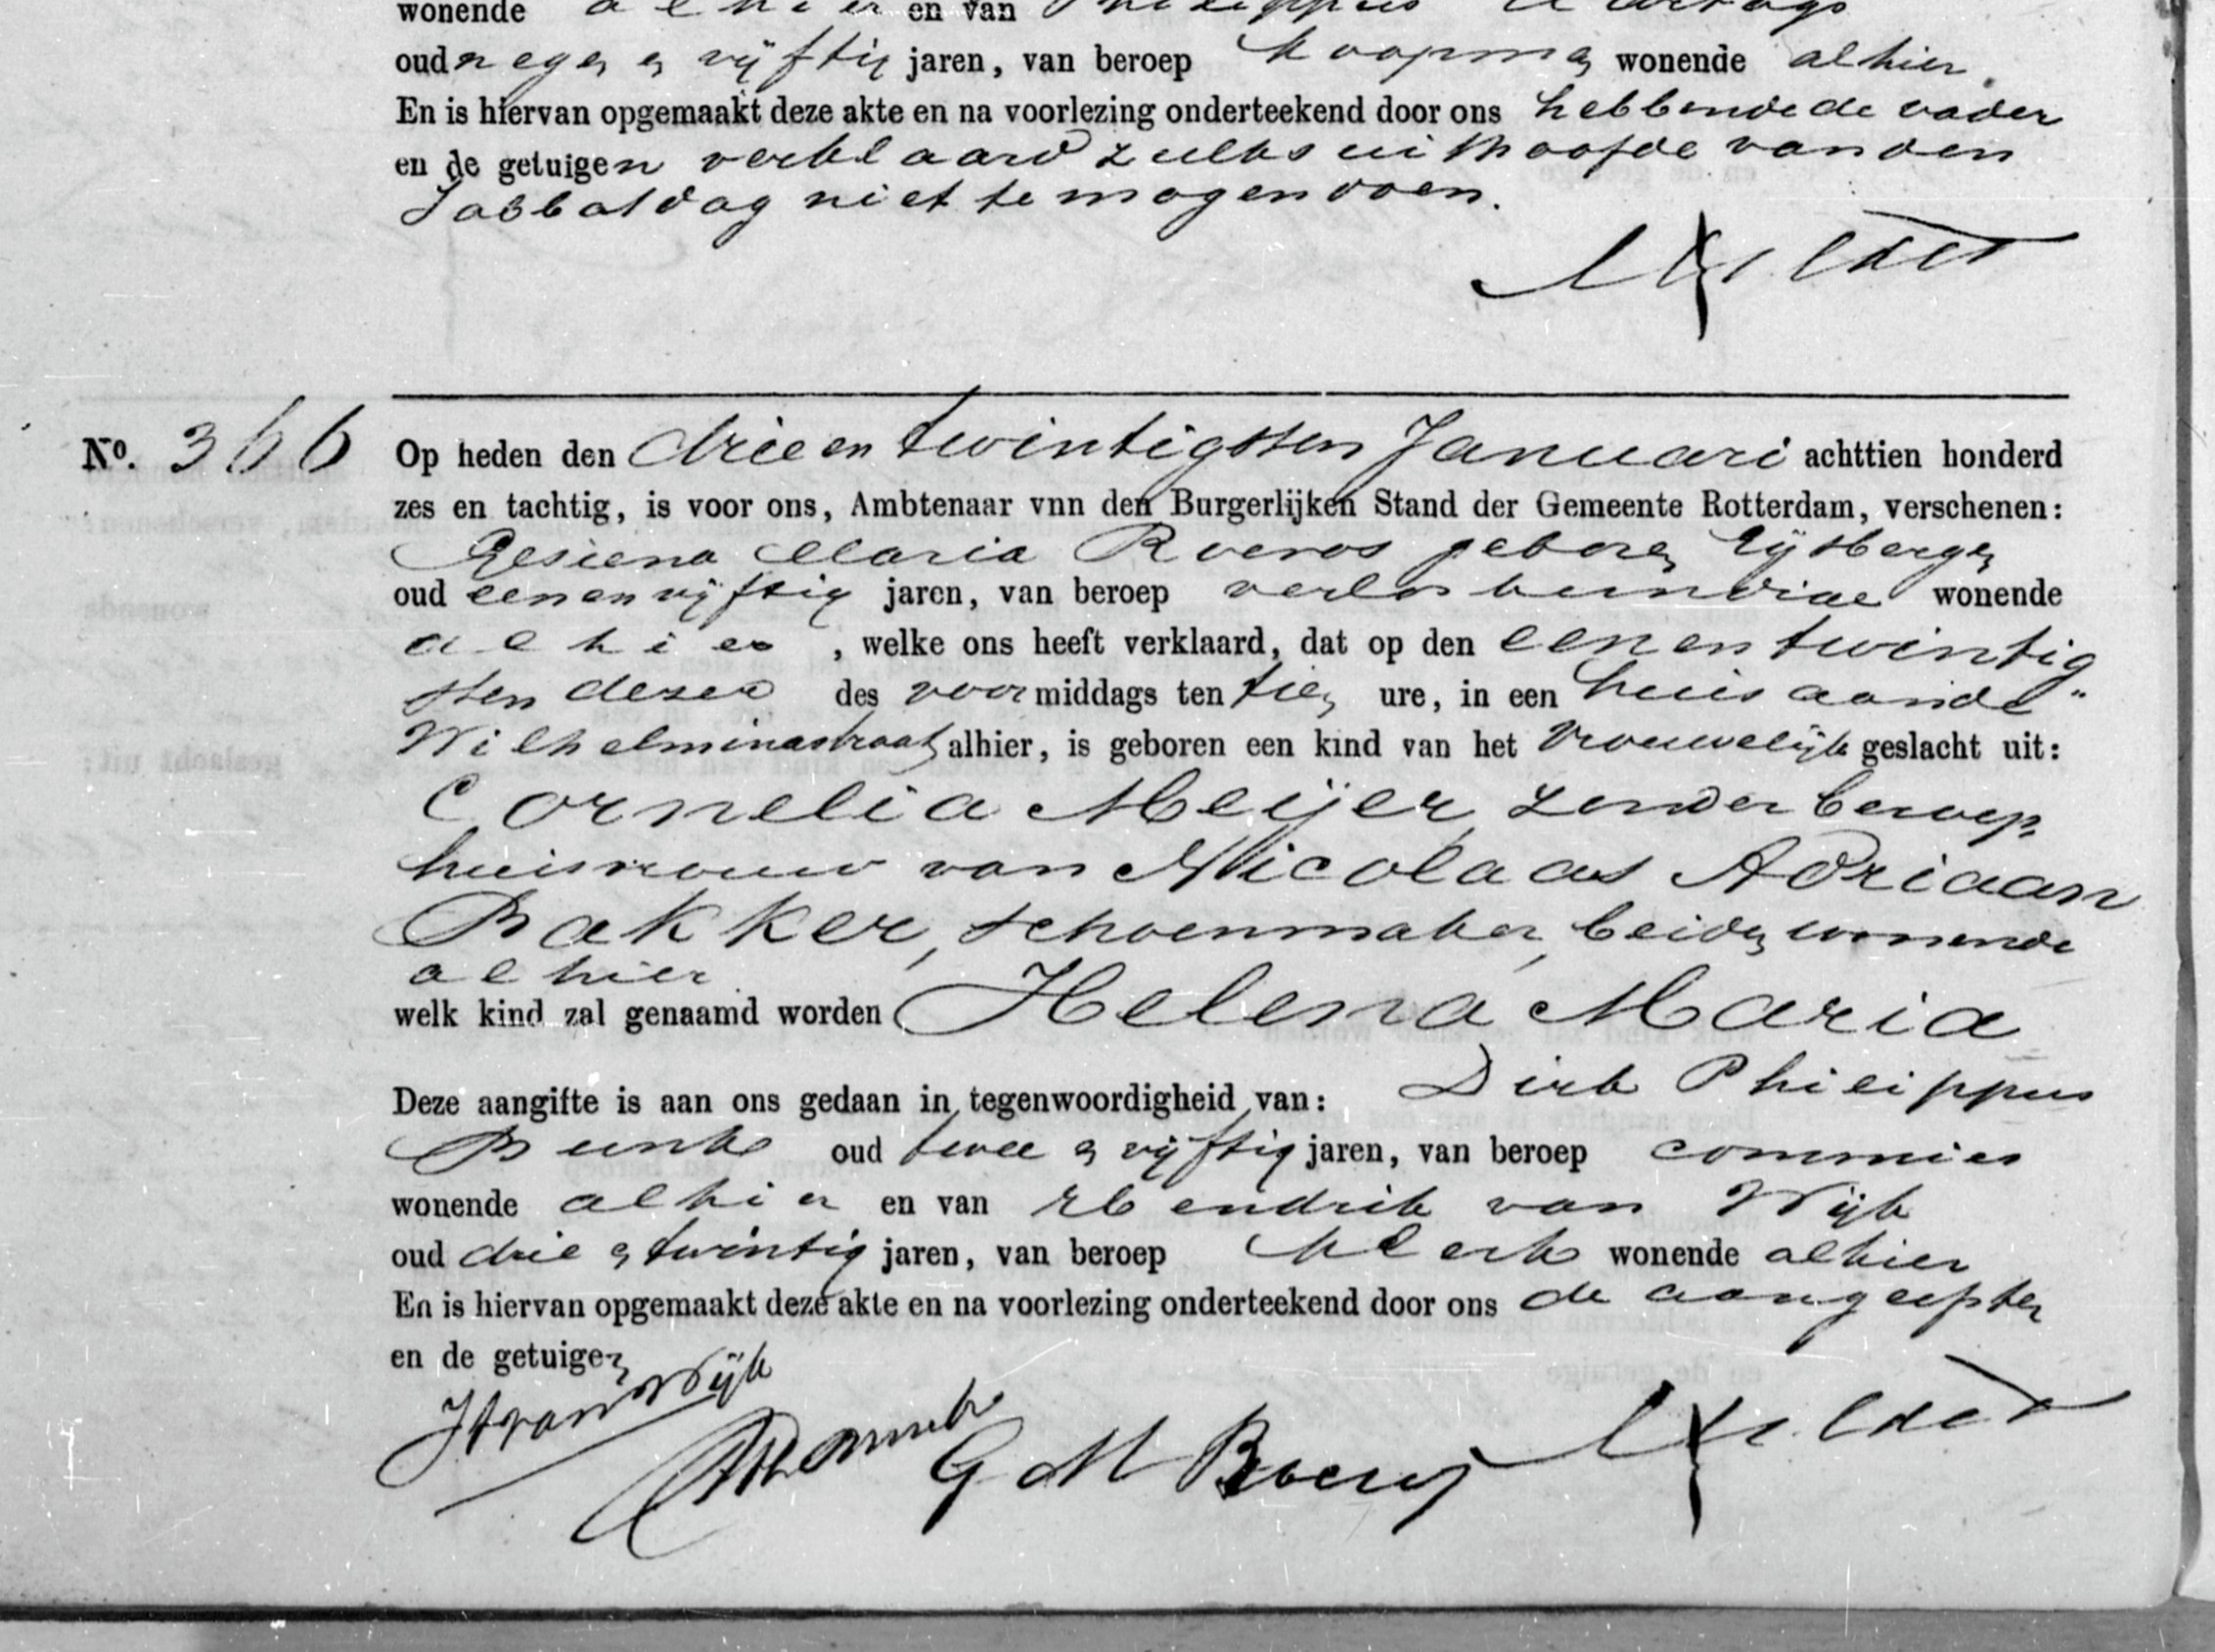 wonende alhier en van Philippus
oud negen en vijftig jaren, van beroep koopman wonende alhier.
En is hiervan opgemaakt deze akte en na voorlezing onderteekend door ons hebbende de vader
en de getuigen verklaard zulks uit hoofde van den
Sabbatdag niet te mogen doen.
No. 366 Op heden den drie en twintigsten Januari achttien honderd
zes en tachtig, is voor ons, Ambtenaar vnn den Burgerlijken Stand der Gemeente Rotterdam, verschenen:
Gesiena Maria Roeros geboren Eijsbergen
oud een en vijftig jaren, van beroep verloskundige wonende
alhier, welke ons heeft verklaard, dat op den een en twintig
sten dezer des voormiddags ten tien ure, in een huis aan de
Wilhelminastraat alhier, is geboren een kind van het Vrouwelijk geslacht uit:
Cornelia Meijer, zonder beroep,
huisvrouw van Nicolaas Adriaan
Bakker, schoenmaker, beiden wonende
alhier
welk kind zal genaamd worden Helena Maria
Deze aangifte is aan ons gedaan in tegenwoordigheid van: Dirk Philippus
oud twee en vijftig jaren, van beroep commies
wonende alhier en van Hendrik van Wijk
oud drie en twintig jaren, van beroep klerk wonende alhier
En is hiervan opgemaakt deze akte en na voorlezing onderteekend door ons de aangeefster
en de getuigen
H van Wijk
G M Roeros